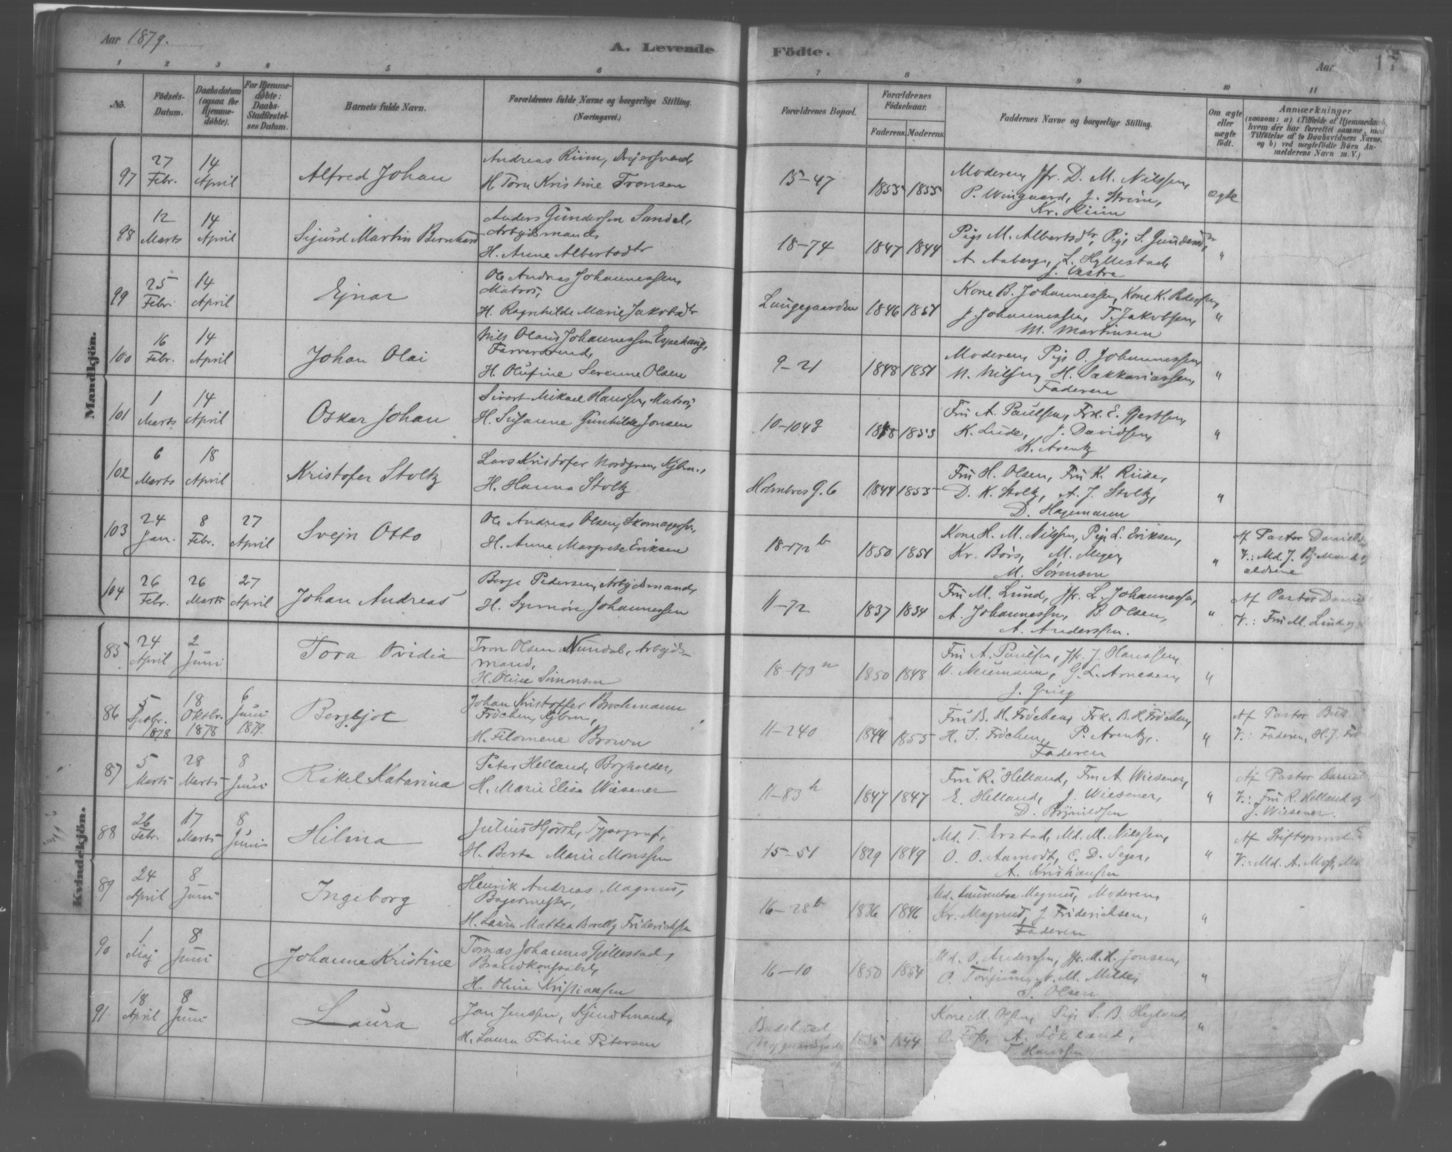 Aar 1879.
A. Levende Födte.
Aar
1 2 3 4 5 6 7 8 9 10 11
No.
Födsels-Datum.
Daabsdatum (ogsaa for Hjemme-döbte).
For Hjemme-döbte: Daabs-Stadfæstel-ses Datum.
Barnets fulde Navn.
Forældrenes fulde Navne og borgerlige Stilling. (Næringsvei.)
Forældrenes Bopæl.
Forældrenes Födselsaar.
Faderens. Moderens.
Faddernes Navne og borgerlige Stilling.
Om ægte eller uægte födt.
Anmærkninger
Mandkjön.
97 27 Febr. 14 April Alfred Johan Andreas Riim,
H. Tora Kristine Tronsen
15-47 1855 1855 Moderen, Jfr. D. M. Nilssen,
P. Wingaard, J. Strøm,
Kr. Riim
ægte
98 12 Marts 14 April Sigurd Martin Bernhard Anders Gundersen Sandal,
Arbeidsmand,
H. Anne Albertsdtr
18-74 1847 1844 Pige M. Albertsdtr, Pige S. Gundersdtr,
A. Aaberge, L. Hyllestad,
J. Vestre
"
99 25 Febr. 14 April Ejnar Ole Andreas Johannessen,
Matros,
H. Ragnhilde Marie Jakobsdtr
Laugegaarden 1846 1851 Kone B. Johannessen, Kone K. Pedersen,
J. Johannessen, T. Jakobsen,
M. Martinsen
"
100 16 Febr. 14 April Johan Olai Nils Olaus Johannessen Espehaug,
H. Olufine Severine Olsen
9-21 1848 1851 Moderen, Pige O. Johannessen,
N. Nilsen, H. Sakkariassen,
Faderen
"
101 1 Marts 14 April Oskar Johan Sivert Mikael Hanssen, Matros,
H. Susanne Gunhilde Jonsen
10-1048 1853 Fru A. Paulsen, Frk. E. Gjertsen,
K. Lude, J. Davidsen,
K. Arentz
"
102 6 Marts 18 April Kristofer Stoltz Lars Kristofer Nordgreen, Kjbm.,
H. Hanna Stoltz
9.6 1844 1855 Fru H. Olsen, Fru K. Riise,
D. K. Stoltz, A. J. Stoltz,
D. Hagemann
"
103 24 Jan. 8 Febr. 27 April Svejn Otto Ole Andreas Olsen, Skomagersv.
H. Anne Margrete Eriksen
18-172 b 1850 1851 Kone H. M. Nilssen, Pige L. Eriksen,
Kr. Børs, M. Meyer,
M. Sørensen
"
Af Pastor
V.: Md. J.
104 26 Febr. 26 Marts 27 April Johan Andreas Berge Pedersen, Arbejdsmand,
H. Synnøve Johannessen
11-72 1837 1854 Fru M. Lund, Jfr. L. Johannessen,
A. Johannessen, B. Olsen,
A. Anderssen.
"
Af Pastor
V.: Fru M. Lund og
Kvindekjön.
85 24 April 2 Juni Tora Ovidia Tron Olsen Nundal, Arbejds-
mand,
H. Oline Simonsen
18-173 a 1850 1848 Fru A. Paulsen, Jfr. J. Hanssen,
V. Neumann, G. L. Arnesen,
J. Grieg
"
86 5 Septbr. 1878 18 Oktbr. 1878 6 Juni 1879. Bergljot Johan Kristoffer Brochmann
Fröchen, Kjbm.,
H. Filomene Brown
11-240 1844 1855 Fru B. M. Fröchen, Frk. B. K. Fröchen,
H. J. Fröchen, P. Arentz.
Faderen
"
Af Pastor
V.: Faderen, H. J.
87 5 Marts 28 Marts 8 Juni Rakel Katarina Peter Helland, Bogholder,
H. Marie Elisa Wiesener
11-83 h 1847 1847 Fru R. Helland, Fru A. Wiesener,
E. Helland, J. Wiesener,
D. Brynildsen
"
Af Pastor
V.: Fru R. Helland og
J. Wiesener.
88 26 Febr. 17 Marts 8 Juni Hilma Julius Hjorth, Typograf,
H. Berta Marie Monssen
15-51 1829 1849 Md. T. Erstad, Md. M. Nilssen,
O. O. Aamodt, C. D. Seger,
A. Kristiansen
"
Af Stiftsprovst
V.: Md. A.
89 24 April 8 Juni Ingeborg Henrik Andreas Magnus,
Bagermester,
H. Laura Mattea Friderichsen
16-28 b 1836 1846 Md. Laurentze Magnus, Moderen,
Kr. Magnus, J. Friderichsen,
Faderen
"
90 1 Maj 8 Juni Johanne Kristine Tomas Johannes Gjillestad,
Brandkonstabel,
H. Oline Kristiansen
16-10 1850 1854 Md. O. Anderssen, Jfr. M. K. Jonsen,
M. Milde,
S. Olsen
"
91 18 April 8 Juni Laura Jan Jenssen,
H. Laura Petrine Petersen
1844 Kone M. Olsen, Pige S. B.
A. Løkeland,
T. Hanssen
"